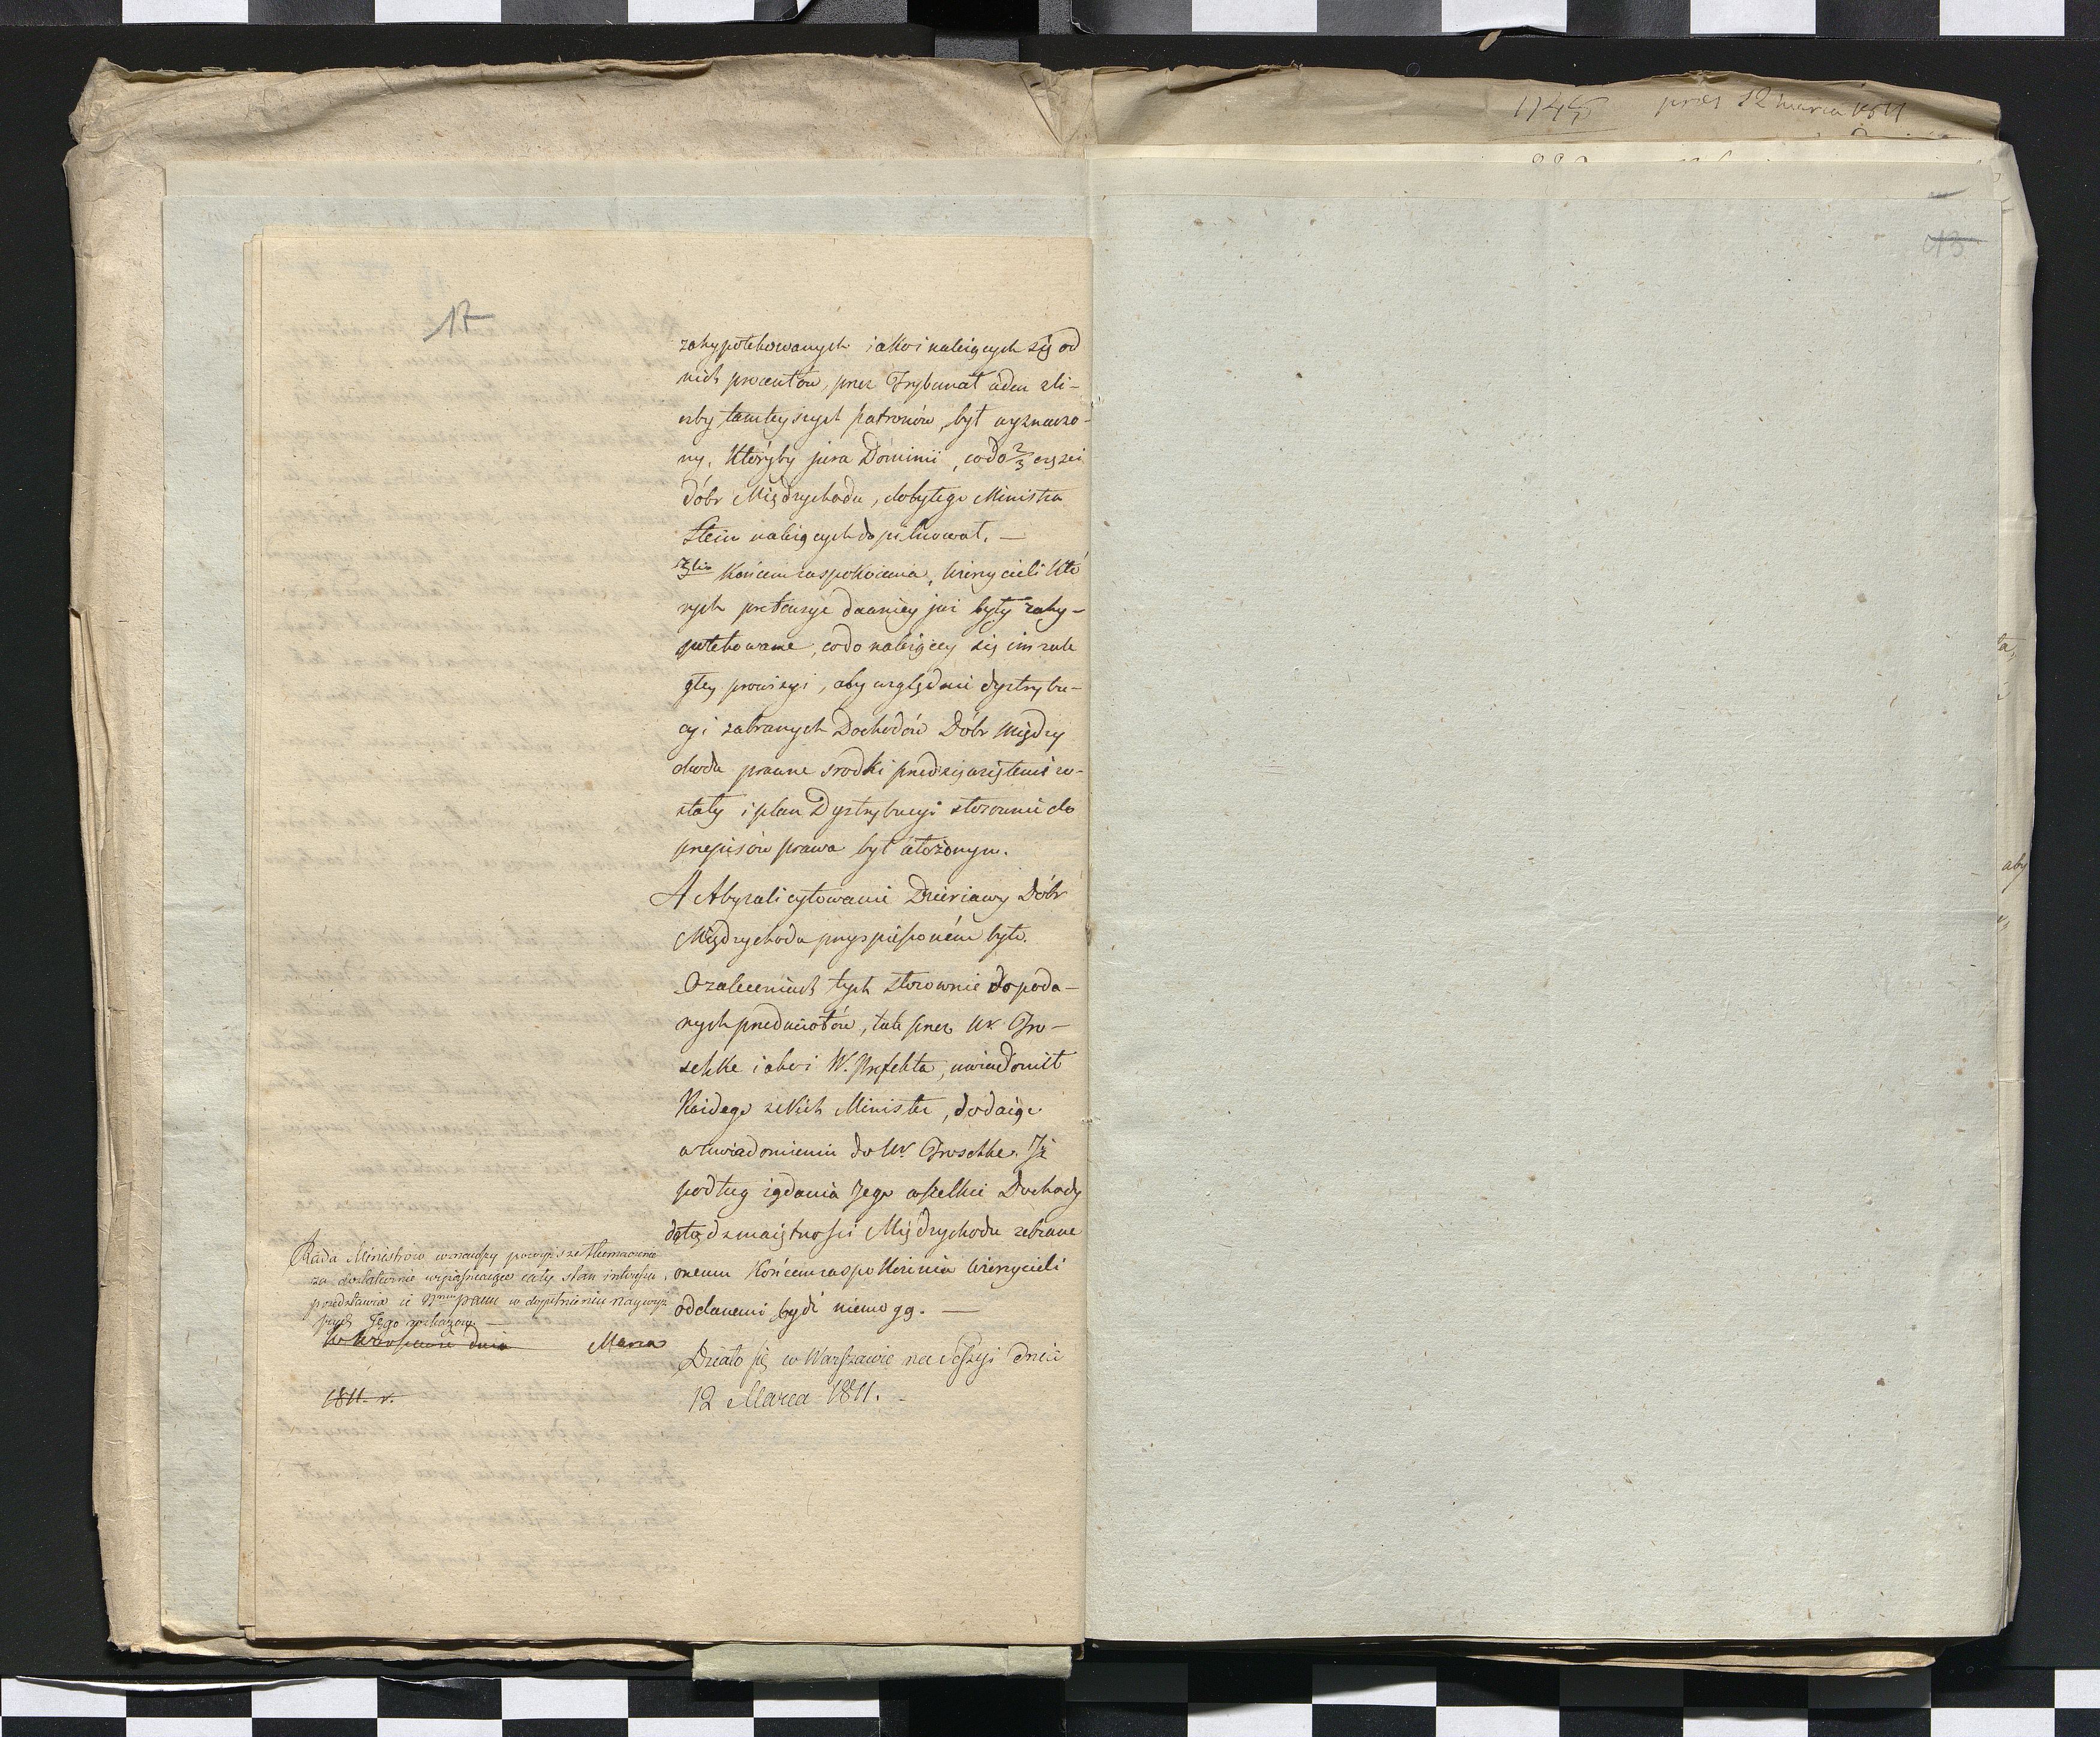 1745 prez 12 marca 1811
13
17
zahypotekowanych iako i należących się od
nich procentów, przez Trybunał ieden z li-
czby tamteyszych Patronów, był wyznaczo-
ny, któryby jura Dominii, co do 2/3 części
dóbr Międzychodu, do byłego Ministra
Stein należących dopilnował. —
3tio Końcem zaspokoienia, wierzycieli któ
rych pretensye dawniey już były zahy-
potekowane, co do należącey się im zale
głey prowizyi, aby względnie dystrybu-
cyi zabranych Dochodów Dóbr Między
chodu prawne srodki przedsięwziętemi zo-
stały i plan Dystrybucyi stosownie do
przepisów prawa był ułożonym.
4 Aby zalicytowanie Dzierżawy Dóbr
Międzychodu przyspieszoném było.
O zaleceniach tych stosownie do poda-
nych przedmiotów, tak przez Ur. Gro-
schke iako i W. Prefekta, uwiadomił
Każdego z Nich Minister, dodaiąc
w uwiadomieniu do Ur. Groschke. Iż
podług żądania Jego wszelkie Dochody
dotąd z maiętności Międzychodu zebrane
onemu Końcem zaspokoienia wierzycieli
oddanemi bydź niemogą. —
Działo się w Warszawie na Sessyi dnia
12 Marca 1811. –
Rada Ministrów uznawszy powyższe tłumaczenie
za dostatecznie wyjaśniaiące cały stan interessu,
przedstawia ie Nmu Panu w dopełnieniu naywyż
szych Jego rozkazów —
w Warszawie dnia Marca
1811. r.
ta,
aby